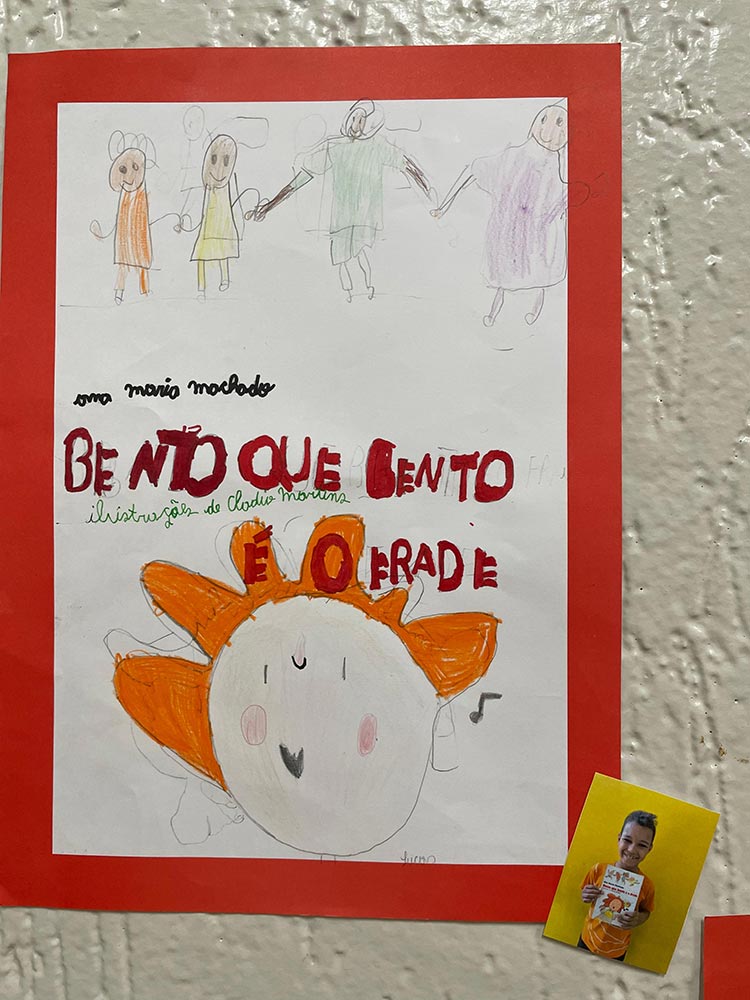 ana maria machado
BENTO QUE BENTO
ilistrações de Cladio Martins
É O FRADE
Lucas